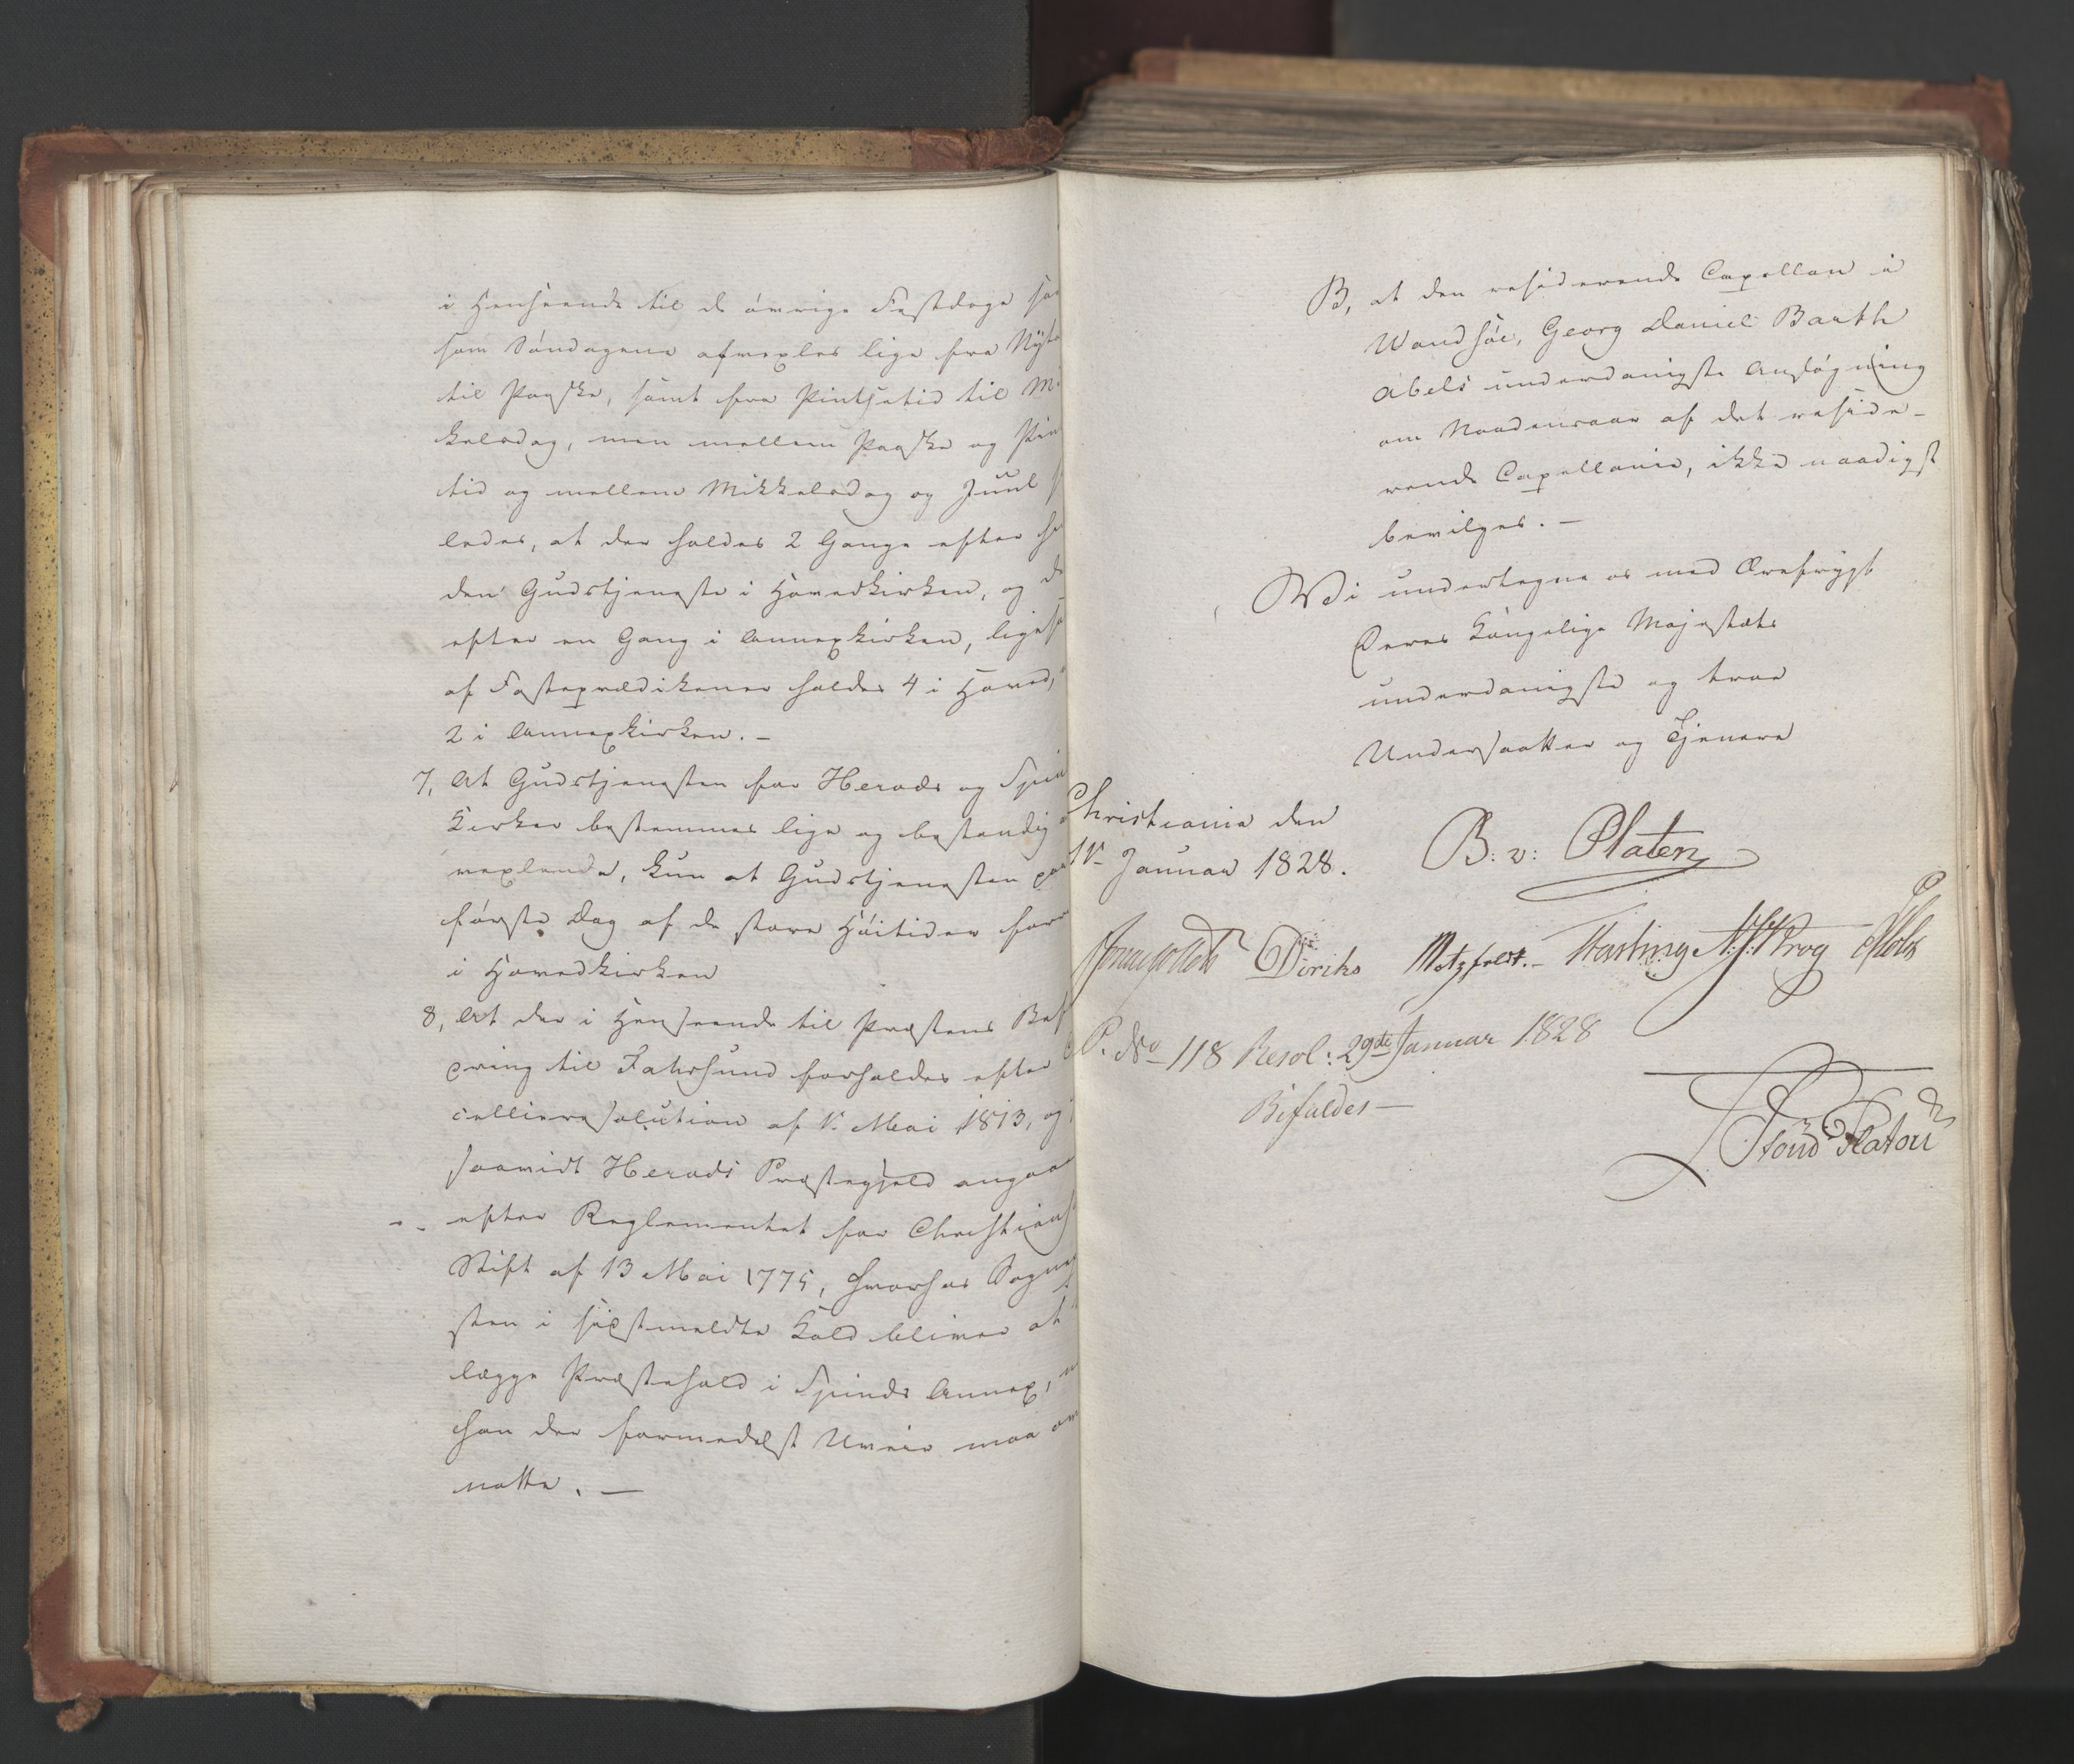 i Henseende til de øvrige Festdage saa
som Søndagene afvexles lige fra Nyt
til Paaske, samt fra Pintsetid til Mi
kelsdag, men mellem Paaske og Pin
tid og mellem Mikkelsdag og Juul s
ledes, at der holdes 2 Gange efter hi
den Gudstjeneste i Hovedkirken, og de
efter en Gang i Annexkirken, ligesa
af Fasteprædikener holdes 4 i Hoved,
2 i Annexkirken. –
7, At Gudstjenesten for Herads og Spin
Kirker bestemmes lige og bestandig
vexlende, kun at Gudstjenesten paa
første Dag af de store Høitider for
i Hovedkirken
8, At der i Henseende til Præstens Bef
dring til Fahrsund forholdes efter
cellieresolution af 1. Mai 1813, og
saavidt Herads Præstegjeld angaae
efter Reglementet for Christians
Stift af 13 Mai 1775, hvorhos Sogne
sten i sidstmeldte Kald bliver at
lægge Præstehold i Spinds Annex,
han der formedelst Uveir maa ov
natte. –
B, at den residerende Capellan i
Wandsøe, Georg Daniel Barth
Abels underdanigste Ansøgning
om Naadensaar af det reside-
rende Capellanie, ikke naadigst
bevilges. –
Wi undertegne os med Ærefrygt
Deres Kongelige Majestæts
underdanigste og troe
Undersaatter og Tjenere
Christiania den
1ste Januar 1828.
B: v: Platen
Diriks Motzfeldt. – Fasting Krog Holst
P. No 118 Resol: 29de Januar 1828
Bifaldes –
Stoud Platou